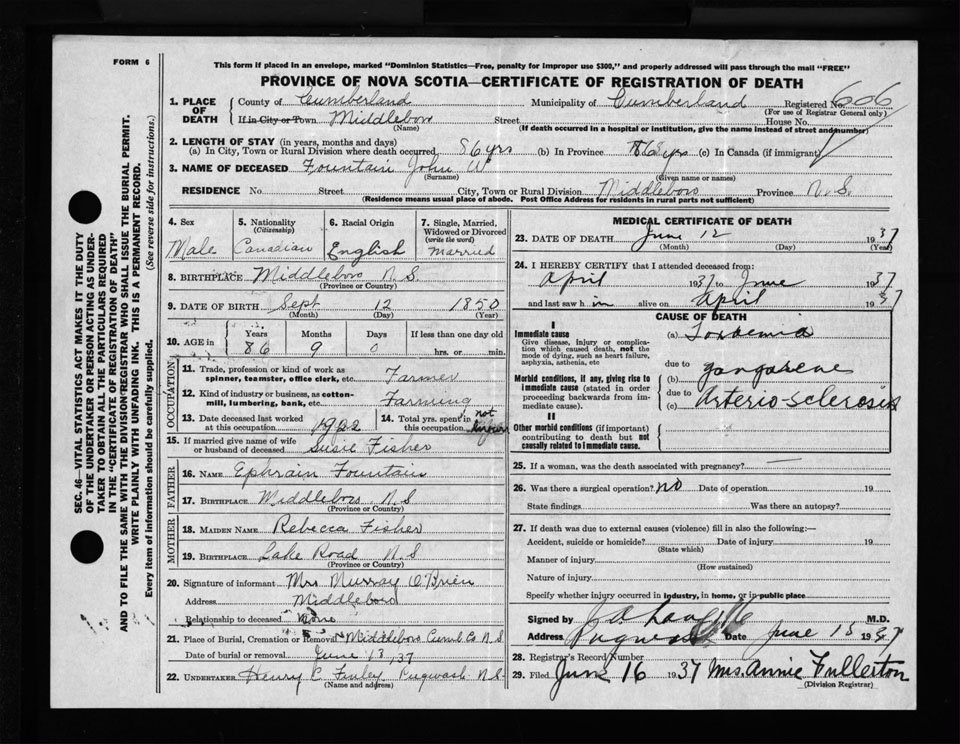 FORM 6
This form if placed in an envelope, marked "Dominion Statistics—Free, penalty for improper use $300," and properly addressed will pass through the mail "FREE"
PROVINCE OF NOVA SCOTIA—CERTIFICATE OF REGISTRATION OF DEATH
SEC. 46—VITAL STATISTICS ACT MAKES IT THE DUTY
OF THE UNDERTAKER OR PERSON ACTING AS UNDER-
TAKER TO OBTAIN ALL THE PARTICULARS REQUIRED
IN THE "CERTIFICATE OF REGISTRATION OF DEATH"
AND TO FILE THE SAME WITH THE DIVISION REGISTRAR WHO SHALL ISSUE THE BURIAL PERMIT.
WRITE PLAINLY WITH UNFADING INK. THIS IS A PERMANENT RECORD.
Every item of information should be carefully supplied. (See reverse side for instructions.)
1. PLACE OF DEATH County of Cumberland Municipality of Cumberland Registered No. 606
(For use of Registrar General only)
If in City or Town Middleboro Street House No.
(Name) (If death occurred in a hospital or institution, give the name instead of street and number)
2. LENGTH OF STAY (in years, months and days)
(a) In City, Town or Rural Division where death occurred, 86 yrs (b) In Province 86 yrs (c) In Canada (if immigrant)
3. NAME OF DECEASED Fountain John W
(Surname) (Given name or names)
RESIDENCE No. Street City, Town or Rural Division Middleboro Province N.S.
(Residence means usual place of abode. Post Office Address for residents in rural parts not sufficient)
4. Sex Male
5. Nationality (Citizenship) Canadian
6. Racial Origin English
7. Single, Married, Widowed or Divorced (write the word) Married
8. BIRTHPLACE Middleboro N.S.
(Province or Country)
9. DATE OF BIRTH Sept 12 1850
(Month) (Day) (Year)
10. AGE in Years 86 Months 9 Days 0 If less than one day old hrs. or min.
OCCUPATION
11. Trade, profession or kind of work as spinner, teamster, office clerk, etc. Farmer
12. Kind of industry or business, as cotton-mill, lumbering, bank, etc. Farming
13. Date deceased last worked at this occupation 1922
14. Total yrs. spent in this occupation not known
15. If married give name of wife or husband of deceased Susie Fisher
FATHER
16. NAME Ephrain Fountain
17. BIRTHPLACE Middleboro N S
(Province or Country)
MOTHER
18. MAIDEN NAME Rebecca Fisher
19. BIRTHPLACE Lake Road N S
(Province or Country)
20. Signature of informant Mrs Murray O'Brien
Address Middleboro
Relationship to deceased None
21. Place of Burial, Cremation or Removal Middleboro Cumb Co N S
Date of burial or removal June 13, 37
22. UNDERTAKER Henry C Finley Pugwash N.S.
(Name and address)
MEDICAL CERTIFICATE OF DEATH
23. DATE OF DEATH June 12 1937
(Month) (Day) (Year)
24. I HEREBY CERTIFY that I attended deceased from:
April 1937 to June 1937
and last saw him alive on April 1937
CAUSE OF DEATH
I
Immediate cause
Give disease, injury or complication which caused death, not the mode of dying, such as heart failure, asphyxia, asthenia, etc
(a) Toxhemia
due to
Morbid conditions, if any, giving rise to immediate cause (stated in order proceeding backwards from immediate cause).
(b) gangarene
due to
(c) Arterio-sclerosis
II
Other morbid conditions (if important) contributing to death but not causally related to immediate cause.
25. If a woman, was the death associated with pregnancy? —
26. Was there a surgical operation? no Date of operation 19
State findings Was there an autopsy?
27. If death was due to external causes (violence) fill in also the following:—
Accident, suicide or homicide? Date of injury 19
(State which)
Manner of injury
(How sustained)
Nature of injury
Specify whether injury occurred in industry, in home, or in public place
Signed by M.D.
Address Pugwash Date June 15 1937
28. Registrar's Record Number
29. Filed June 16 1937 Mrs. Annie Fullerton
(Division Registrar)